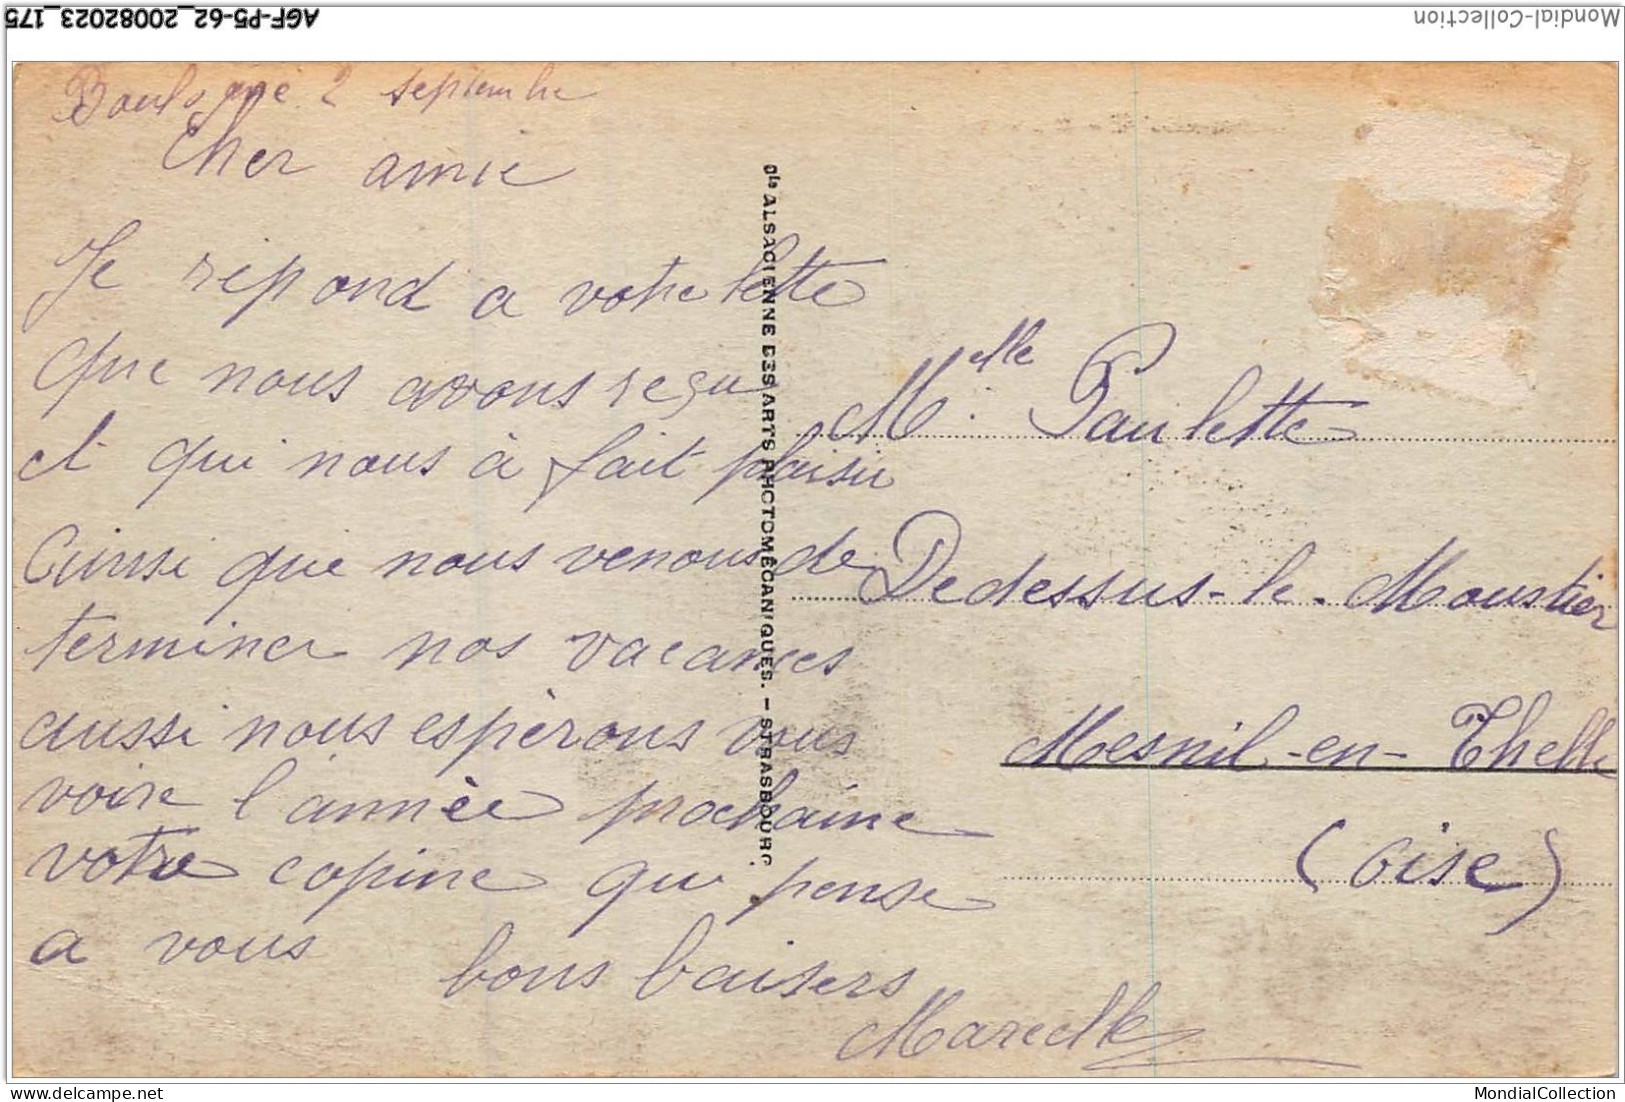 AGF-P5-62_20082023_175
Mondial-Collection
Boulogne 2 septembre
Cher amie
Je répond a votre lettre
que nous avons reçu
et qui nous à fait plaisir
Ainsi que nous venons de
terminer nos vacances
aussi nous espèrons vous
voire l'année prochaine
votre copine qui pense
a vous
bons baisers
Marcelle
Cie ALSACIENNE DES ARTS PHOTOMÉCANIQUES. - STRASBOURG
Melle Paulette
Dedessus-le-Moustier
Mesnil-en-Thelle
(Oise)
MondialCollection